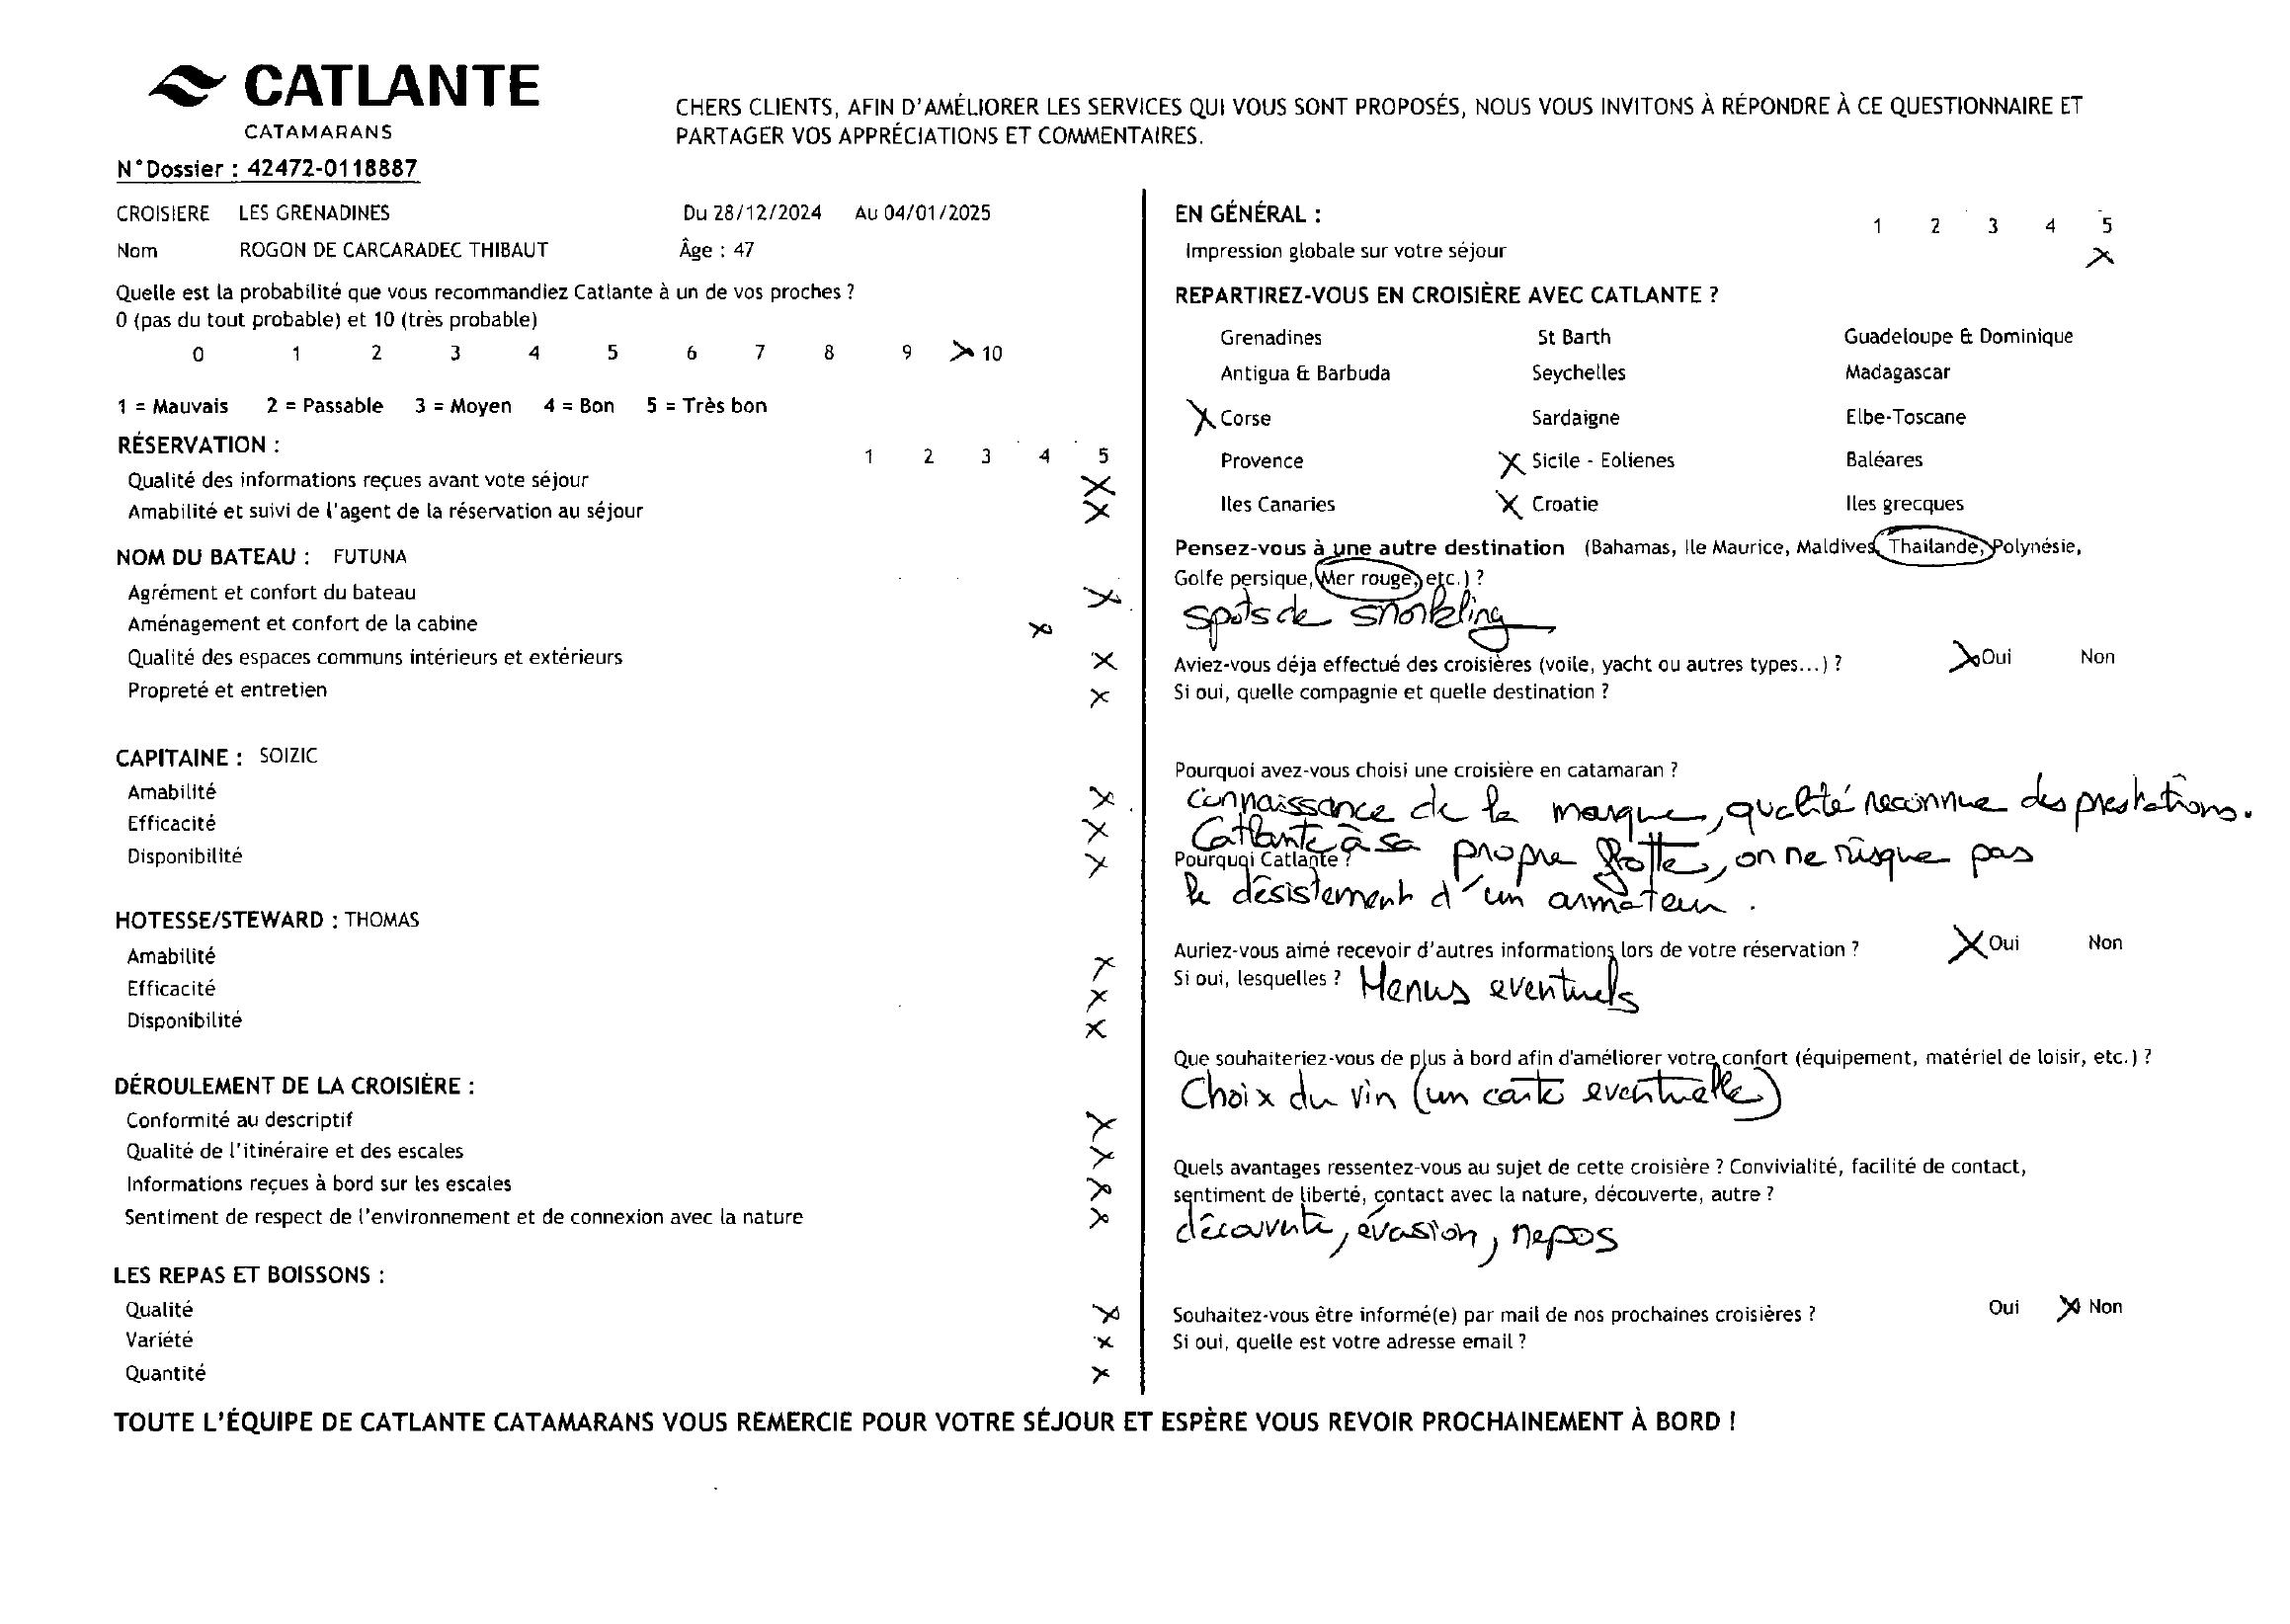 CATLANTE
CATAMARANS
CHERS CLIENTS, AFIN D'AMÉLIORER LES SERVICES QUI VOUS SONT PROPOSÉS, NOUS VOUS INVITONS À RÉPONDRE À CE QUESTIONNAIRE ET
PARTAGER VOS APPRÉCIATIONS ET COMMENTAIRES.
N°Dossier : 42472-0118887
CROISIERE LES GRENADINES Du 28/12/2024 Au 04/01/2025
Nom ROGON DE CARCARADEC THIBAUT Âge : 47
Quelle est la probabilité que vous recommandiez Catlante à un de vos proches ?
0 (pas du tout probable) et 10 (très probable)
0 1 2 3 4 5 6 7 8 9 X 10
1 = Mauvais 2 = Passable 3 = Moyen 4 = Bon 5 = Très bon
RÉSERVATION :
1 2 3 4 5
Qualité des informations reçues avant vote séjour X
Amabilité et suivi de l'agent de la réservation au séjour X
NOM DU BATEAU : FUTUNA
Agrément et confort du bateau X
Aménagement et confort de la cabine X
Qualité des espaces communs intérieurs et extérieurs X
Propreté et entretien X
CAPITAINE : SOIZIC
Amabilité X
Efficacité X
Disponibilité X
HOTESSE/STEWARD : THOMAS
Amabilité X
Efficacité X
Disponibilité X
DÉROULEMENT DE LA CROISIÈRE :
Conformité au descriptif X
Qualité de l'itinéraire et des escales X
Informations reçues à bord sur les escales X
Sentiment de respect de l'environnement et de connexion avec la nature X
LES REPAS ET BOISSONS :
Qualité X
Variété X
Quantité X
EN GÉNÉRAL :
1 2 3 4 5
Impression globale sur votre séjour X
REPARTIREZ-VOUS EN CROISIÈRE AVEC CATLANTE ?
Grenadines St Barth Guadeloupe & Dominique
Antigua & Barbuda Seychelles Madagascar
X Corse Sardaigne Elbe-Toscane
Provence X Sicile - Eolienes Baléares
Iles Canaries X Croatie Iles grecques
Pensez-vous à une autre destination (Bahamas, Ile Maurice, Maldives, Thailande, Polynésie,
Golfe persique, Mer rouge, etc.) ?
spots de snorkeling
Aviez-vous déja effectué des croisières (voile, yacht ou autres types...) ? X Oui Non
Si oui, quelle compagnie et quelle destination ?
Pourquoi avez-vous choisi une croisière en catamaran ?
connaissance de la marque, qualité reconnue des prestations.
Catlante à sa propre flotte, on ne risque pas
Pourquoi Catlante ?
le désistement d'un armateur.
Auriez-vous aimé recevoir d'autres informations lors de votre réservation ? X Oui Non
Si oui, lesquelles ? Menus eventuels
Que souhaiteriez-vous de plus à bord afin d'améliorer votre confort (équipement, matériel de loisir, etc.) ?
Choix du vin (un carte eventuelle)
Quels avantages ressentez-vous au sujet de cette croisière ? Convivialité, facilité de contact,
sentiment de liberté, contact avec la nature, découverte, autre ?
découverte, évasion, repos
Souhaitez-vous être informé(e) par mail de nos prochaines croisières ? Oui X Non
Si oui, quelle est votre adresse email ?
TOUTE L'ÉQUIPE DE CATLANTE CATAMARANS VOUS REMERCIE POUR VOTRE SÉJOUR ET ESPÈRE VOUS REVOIR PROCHAINEMENT À BORD !